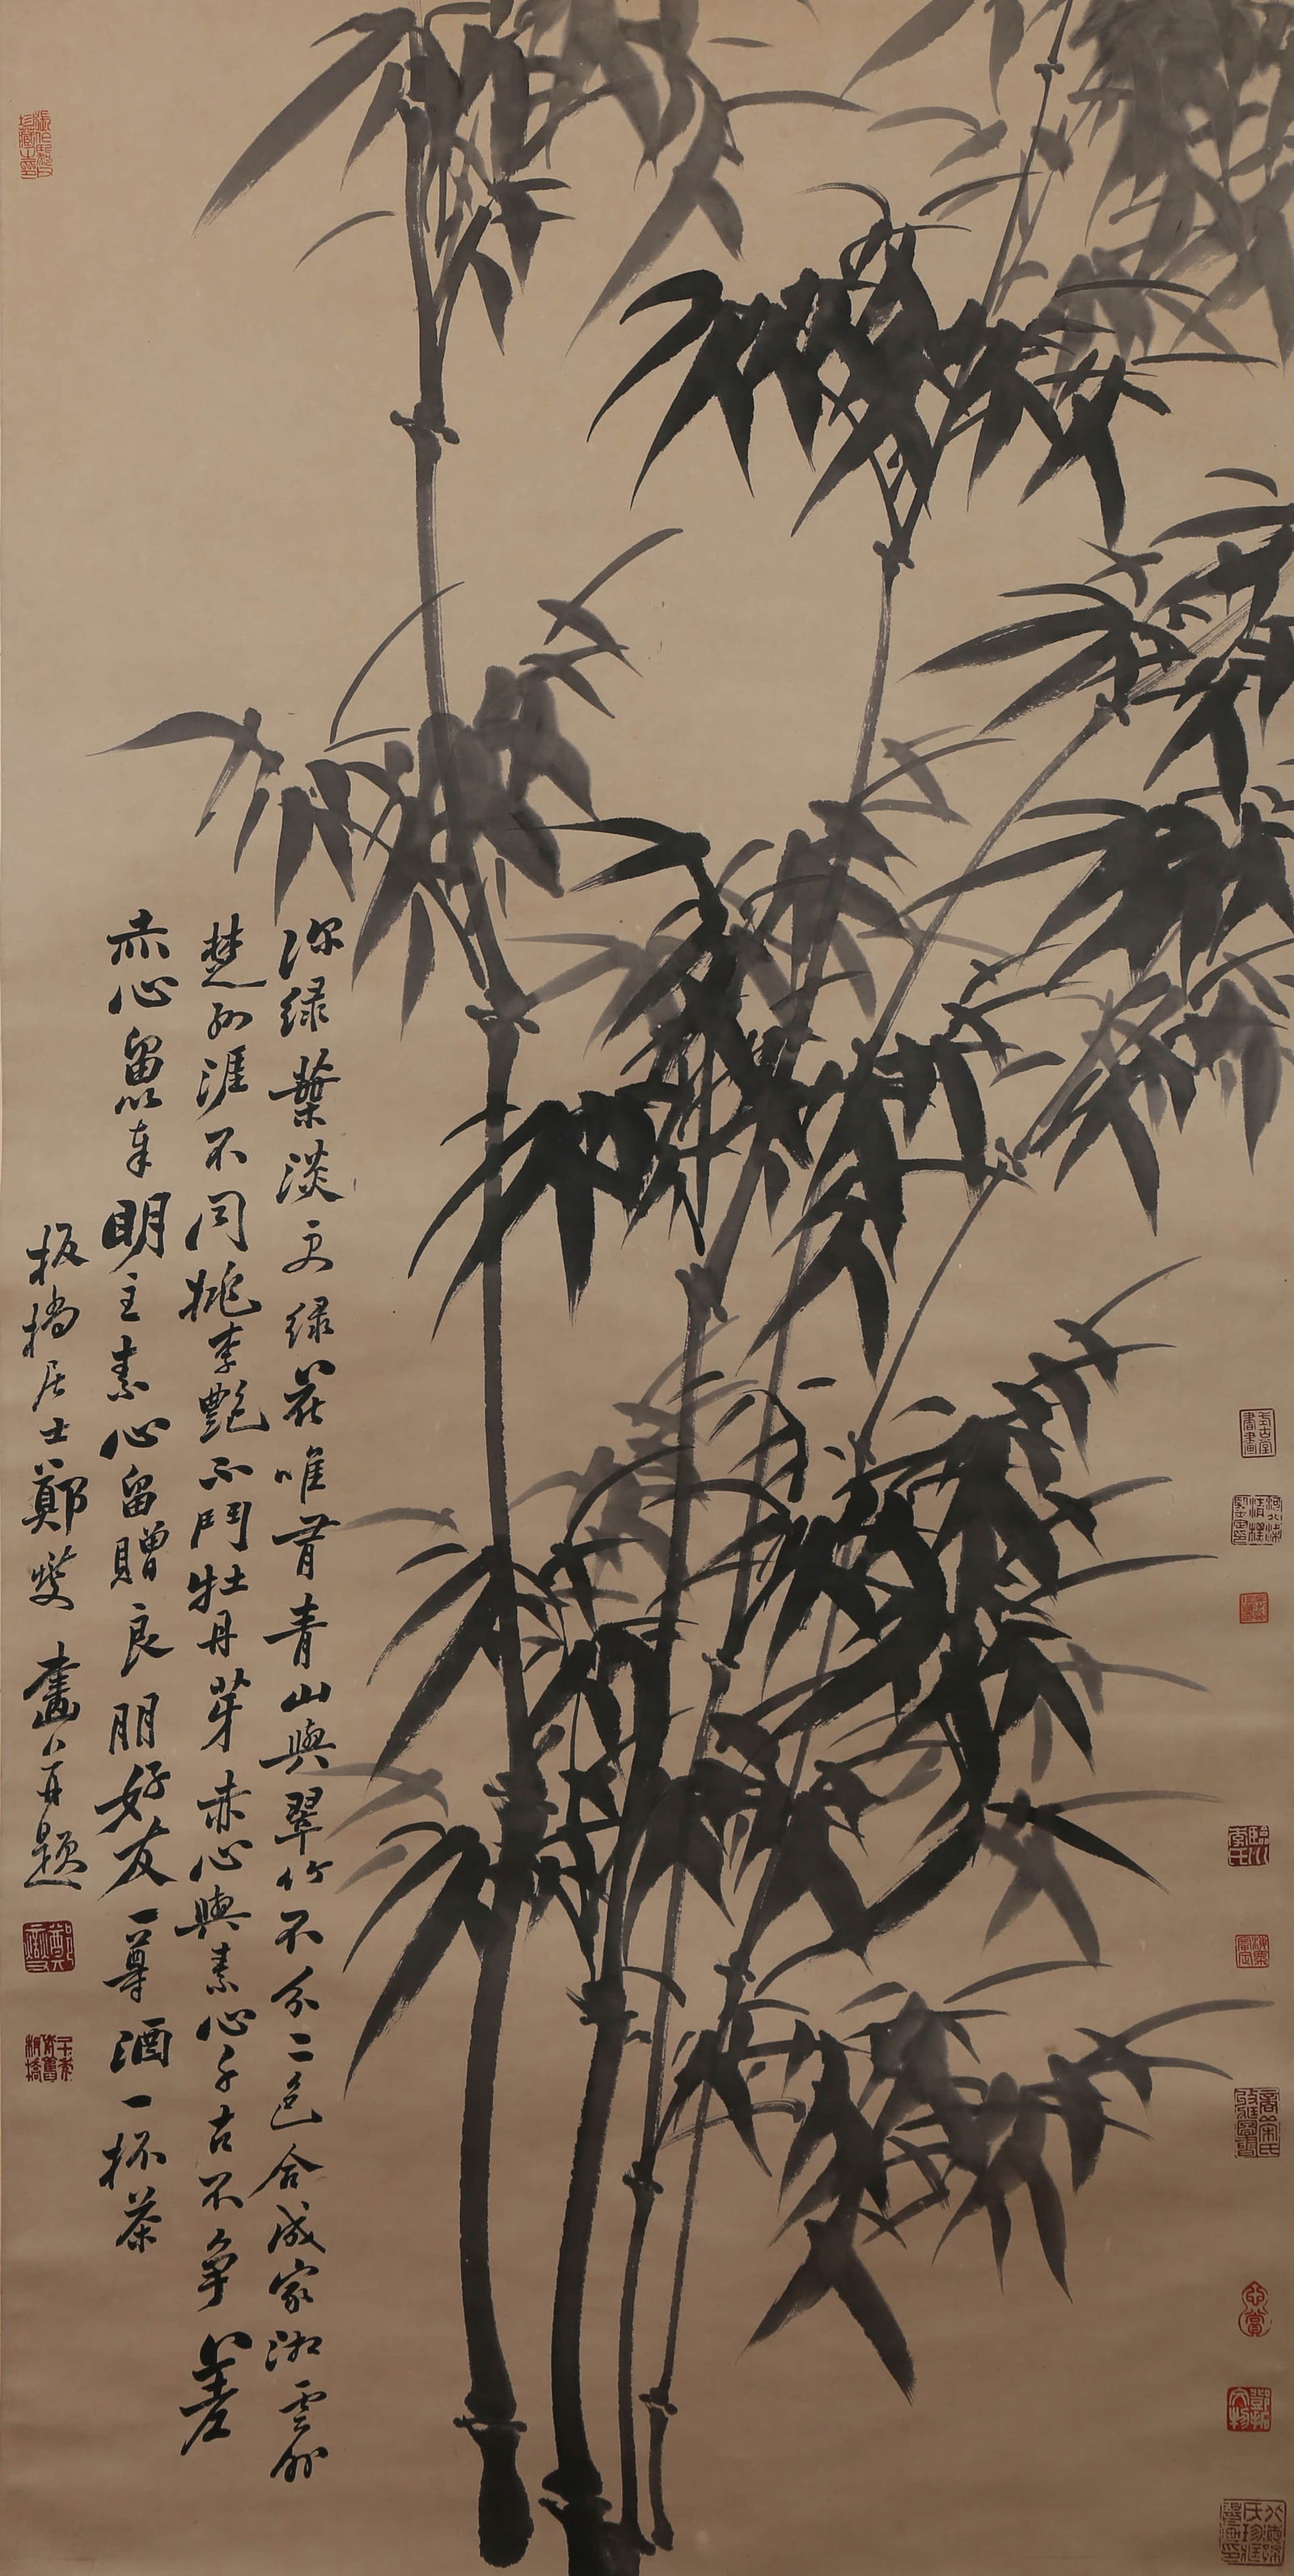 深绿葉淡更绿花唯有青山與翠竹不分二色合成家湘雲外
楚水涯不同桃李艷不鬥牡丹芽赤心與素心千古不争差
赤心留以奉明主素心留贈良朋好友一尊酒一杯茶
板橋居士鄭燮 畫并題
臨川李氏
鄧拓文物